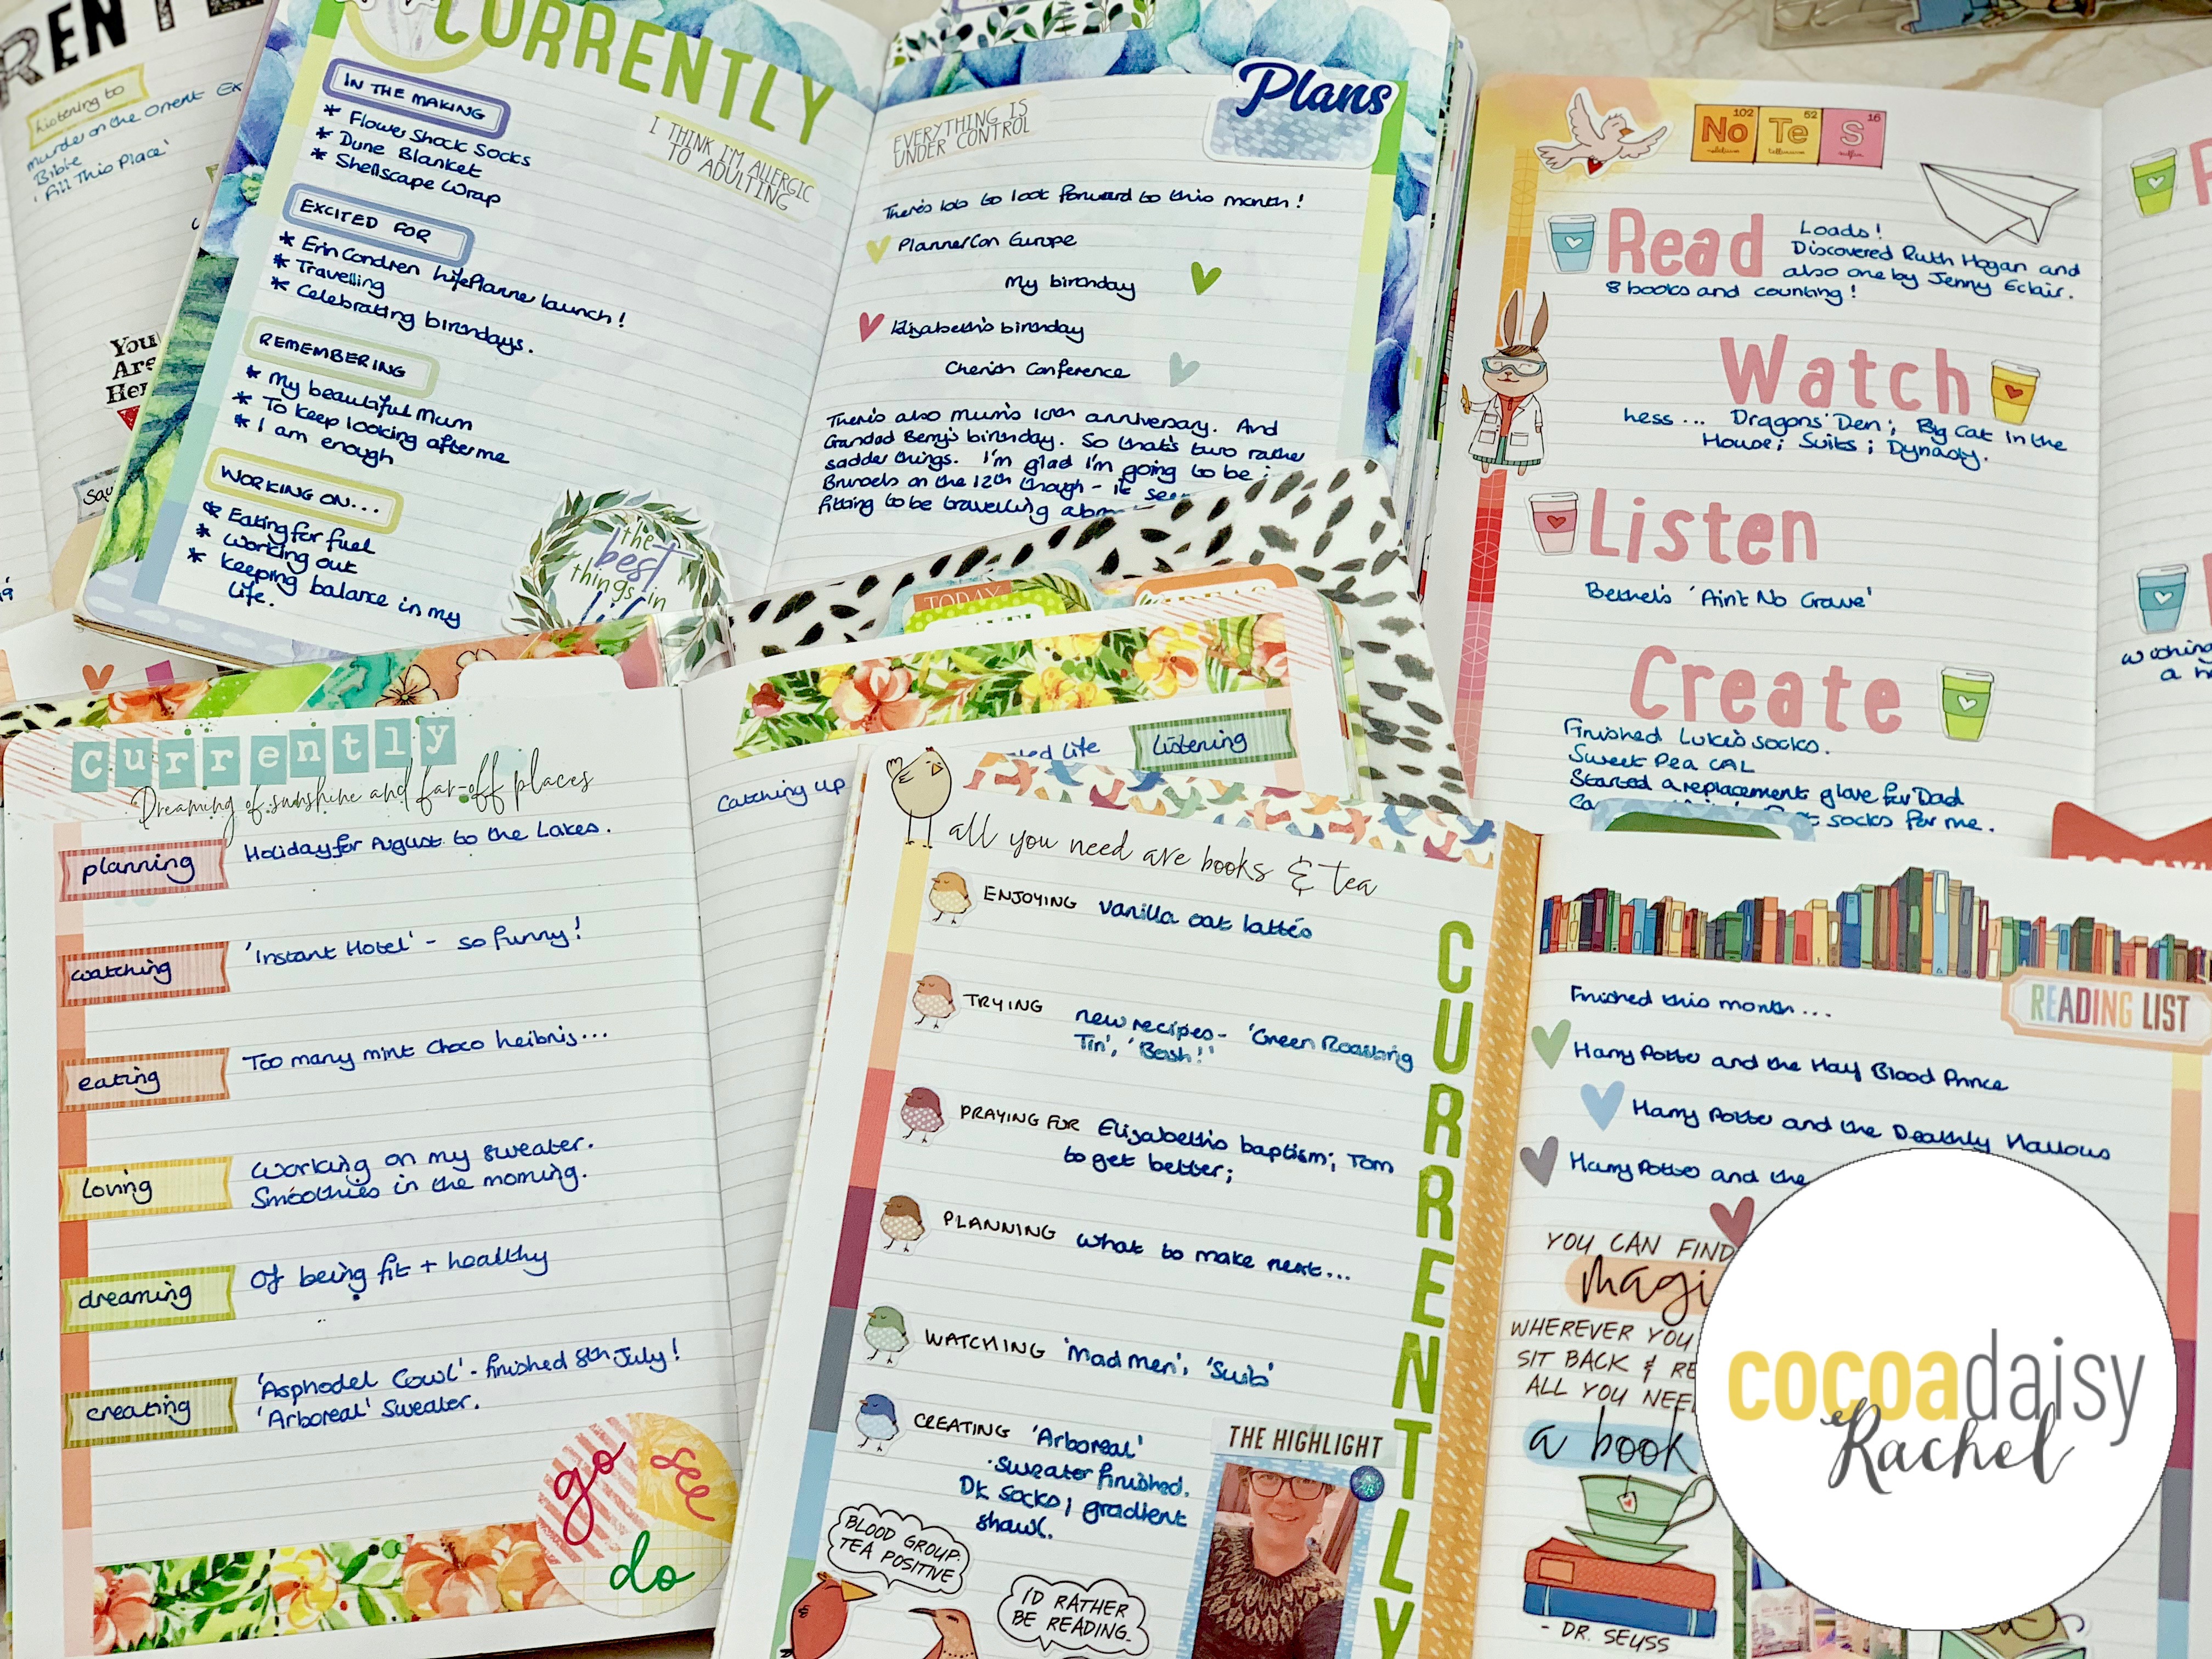 RENT
Listening to
Murder on the Orient Ex
'Bibie
'Fill This Place'
You
Are
Her
Say
CURRENTLY
IN THE MAKING
* Flower Shack Socks
* Dune Blanket
* Shellscape Wrap
I THINK I'M ALLERGIC
TO ADULTING
EXCITED FOR
* Erin Condren LifePlanner launch!
* Travelling
* Celebrating birthdays.
REMEMBERING
* My beautiful Mum
* To keep looking after me
* I am enough
WORKING ON...
* Eating for fuel
* Working out
* Keeping balance in my
life.
the
best
things in
Plans
EVERYTHING IS
UNDER CONTROL
There's lots to look forward to this month!
PlannerCon Europe
My birthday
Elizabeth's birthday
Cherish Conference
There's also mum's 10th anniversary. And
Grandad Berry's birthday. So that's two rather
sadder things. I'm glad I'm going to be
Brussels on the 12th though - it
fitting to be travelling
No Te S
102 52 16
Read
Loads!
Discovered Ruth Hogan and
also one by Jenny Eclair.
8 books and counting!
Watch
hess... Dragons' Den; Big Cat in the
House; Suits; Dynasty.
Listen
Bethel's 'Ain't No Grave'
Create
Finished Luke's socks.
Sweet Pea CAL
Started a replacement glove for Dad
socks for me.
TODAY
Currently
Dreaming of sunshine and far-off places
planning
Holiday for August to the Lakes.
watching
'Instant Hotel' - so funny!
eating
Too many mint choco leibnis...
loving
Working on my sweater.
Smoothies in the morning.
dreaming
Of being fit + healthy
creating
'Asphodel Cowl' - finished 8th July!
'Arboreal' Sweater.
go see
do
Life
Listening
Catching up
all you need are books & tea
CURRENTLY
ENJOYING vanilla oat lattés
TRYING new recipes - 'Green Roasting
Tin', 'Bosh!'
PRAYING FOR Elizabeth's baptism; Tom
to get better;
PLANNING what to make next...
WATCHING 'Mad Men', 'Suits'
CREATING 'Arboreal'
sweater finished.
DK socks; gradient
shawl.
THE HIGHLIGHT
BLOOD GROUP:
TEA POSITIVE
I'D RATHER
BE READING.
READING LIST
Finished this month...
Harry Potter and the Half Blood Prince
Harry Potter and the Deathly Hallows
Harry Potter and the
YOU CAN FIND
magi
WHEREVER YOU
SIT BACK & RE
ALL YOU NEE
a book
- DR. SEUSS
cocoadaisy
Rachel